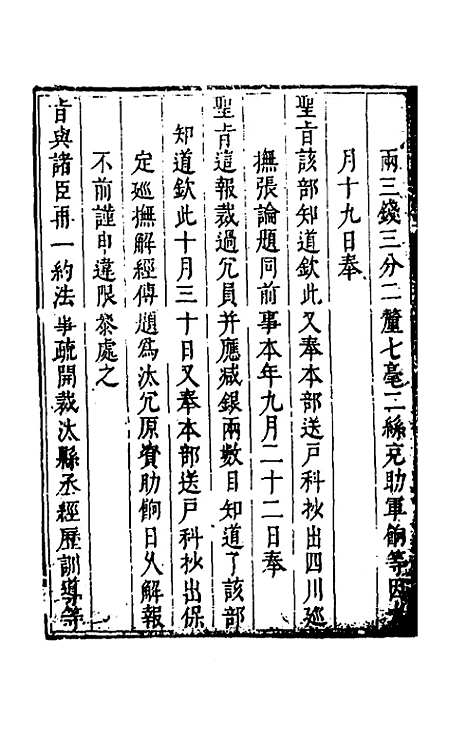 兩三錢三分二釐七毫三絲充助軍餉等因
月十九日奉
聖旨該部知道欽此又奉本部送戶科抄出四川廵
撫張論題同前事本年九月二十二日奉
聖旨這報裁過冗員并應减銀兩數目知道了該部
知道欽此十月三十日又奉本部送戶科抄出保
定廵撫解經傳題爲汰冗原資助餉日乆解報
不前謹申違限叅處之
旨與諸臣再一約法事疏開裁汰縣丞經歷訓導等